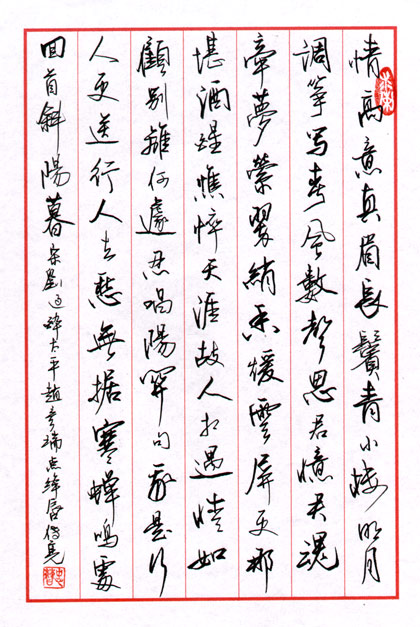 情高意真眉長鬢青小樓明月
調箏寫春風數聲思君憶君魂
牽夢縈翠綃香煖雲屏更那
堪酒醒憔悴天涯故人相遇情如
顧別離何遽忍唱陽關句我是行
人更送行人去愁無據寒蟬鳴處
回首斜陽暮宋劉過醉太平趙彥端點絳唇